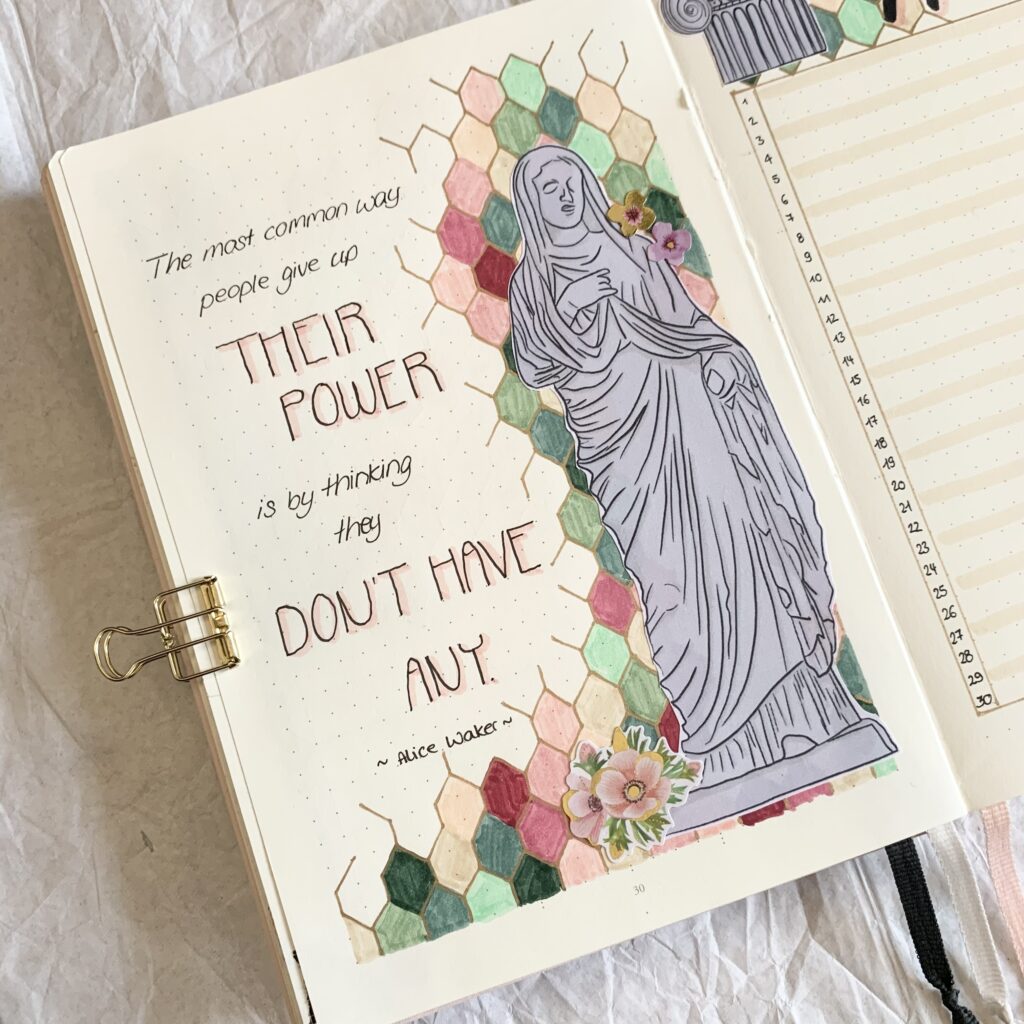 The most common way
people give up
THEIR
POWER
is by thinking
they
DON'T HAVE
ANY.
~ Alice Waker ~
30
1
2
3
4
5
6
7
8
9
10
11
12
13
14
15
16
17
18
19
20
21
22
23
24
25
26
27
28
29
30